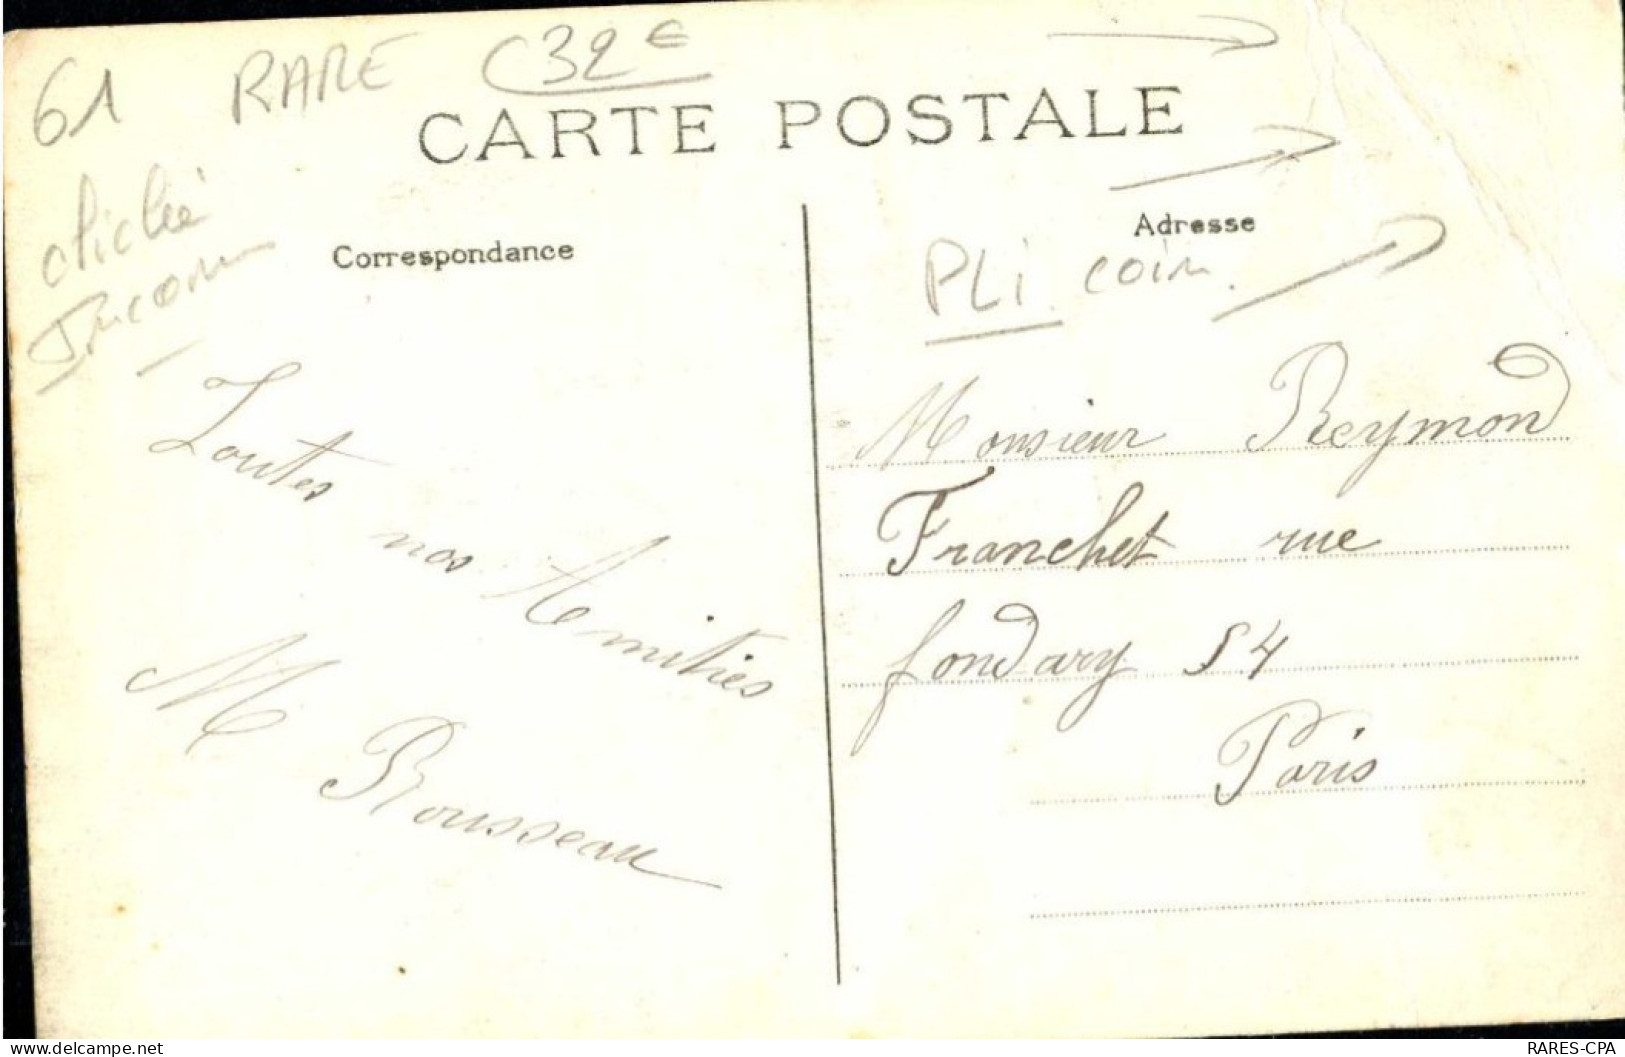 61 RARE C32€
CARTE POSTALE
cliché
Inconnu
Correspondance
Adresse
PLI coin.
Toutes nos Amitiés
M Rousseau
Monsieur Reymond
Franchet rue
fondary 54
Paris
RARES-CPA